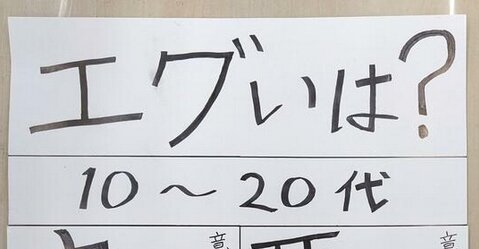 エグいは?
10～20代
意
意